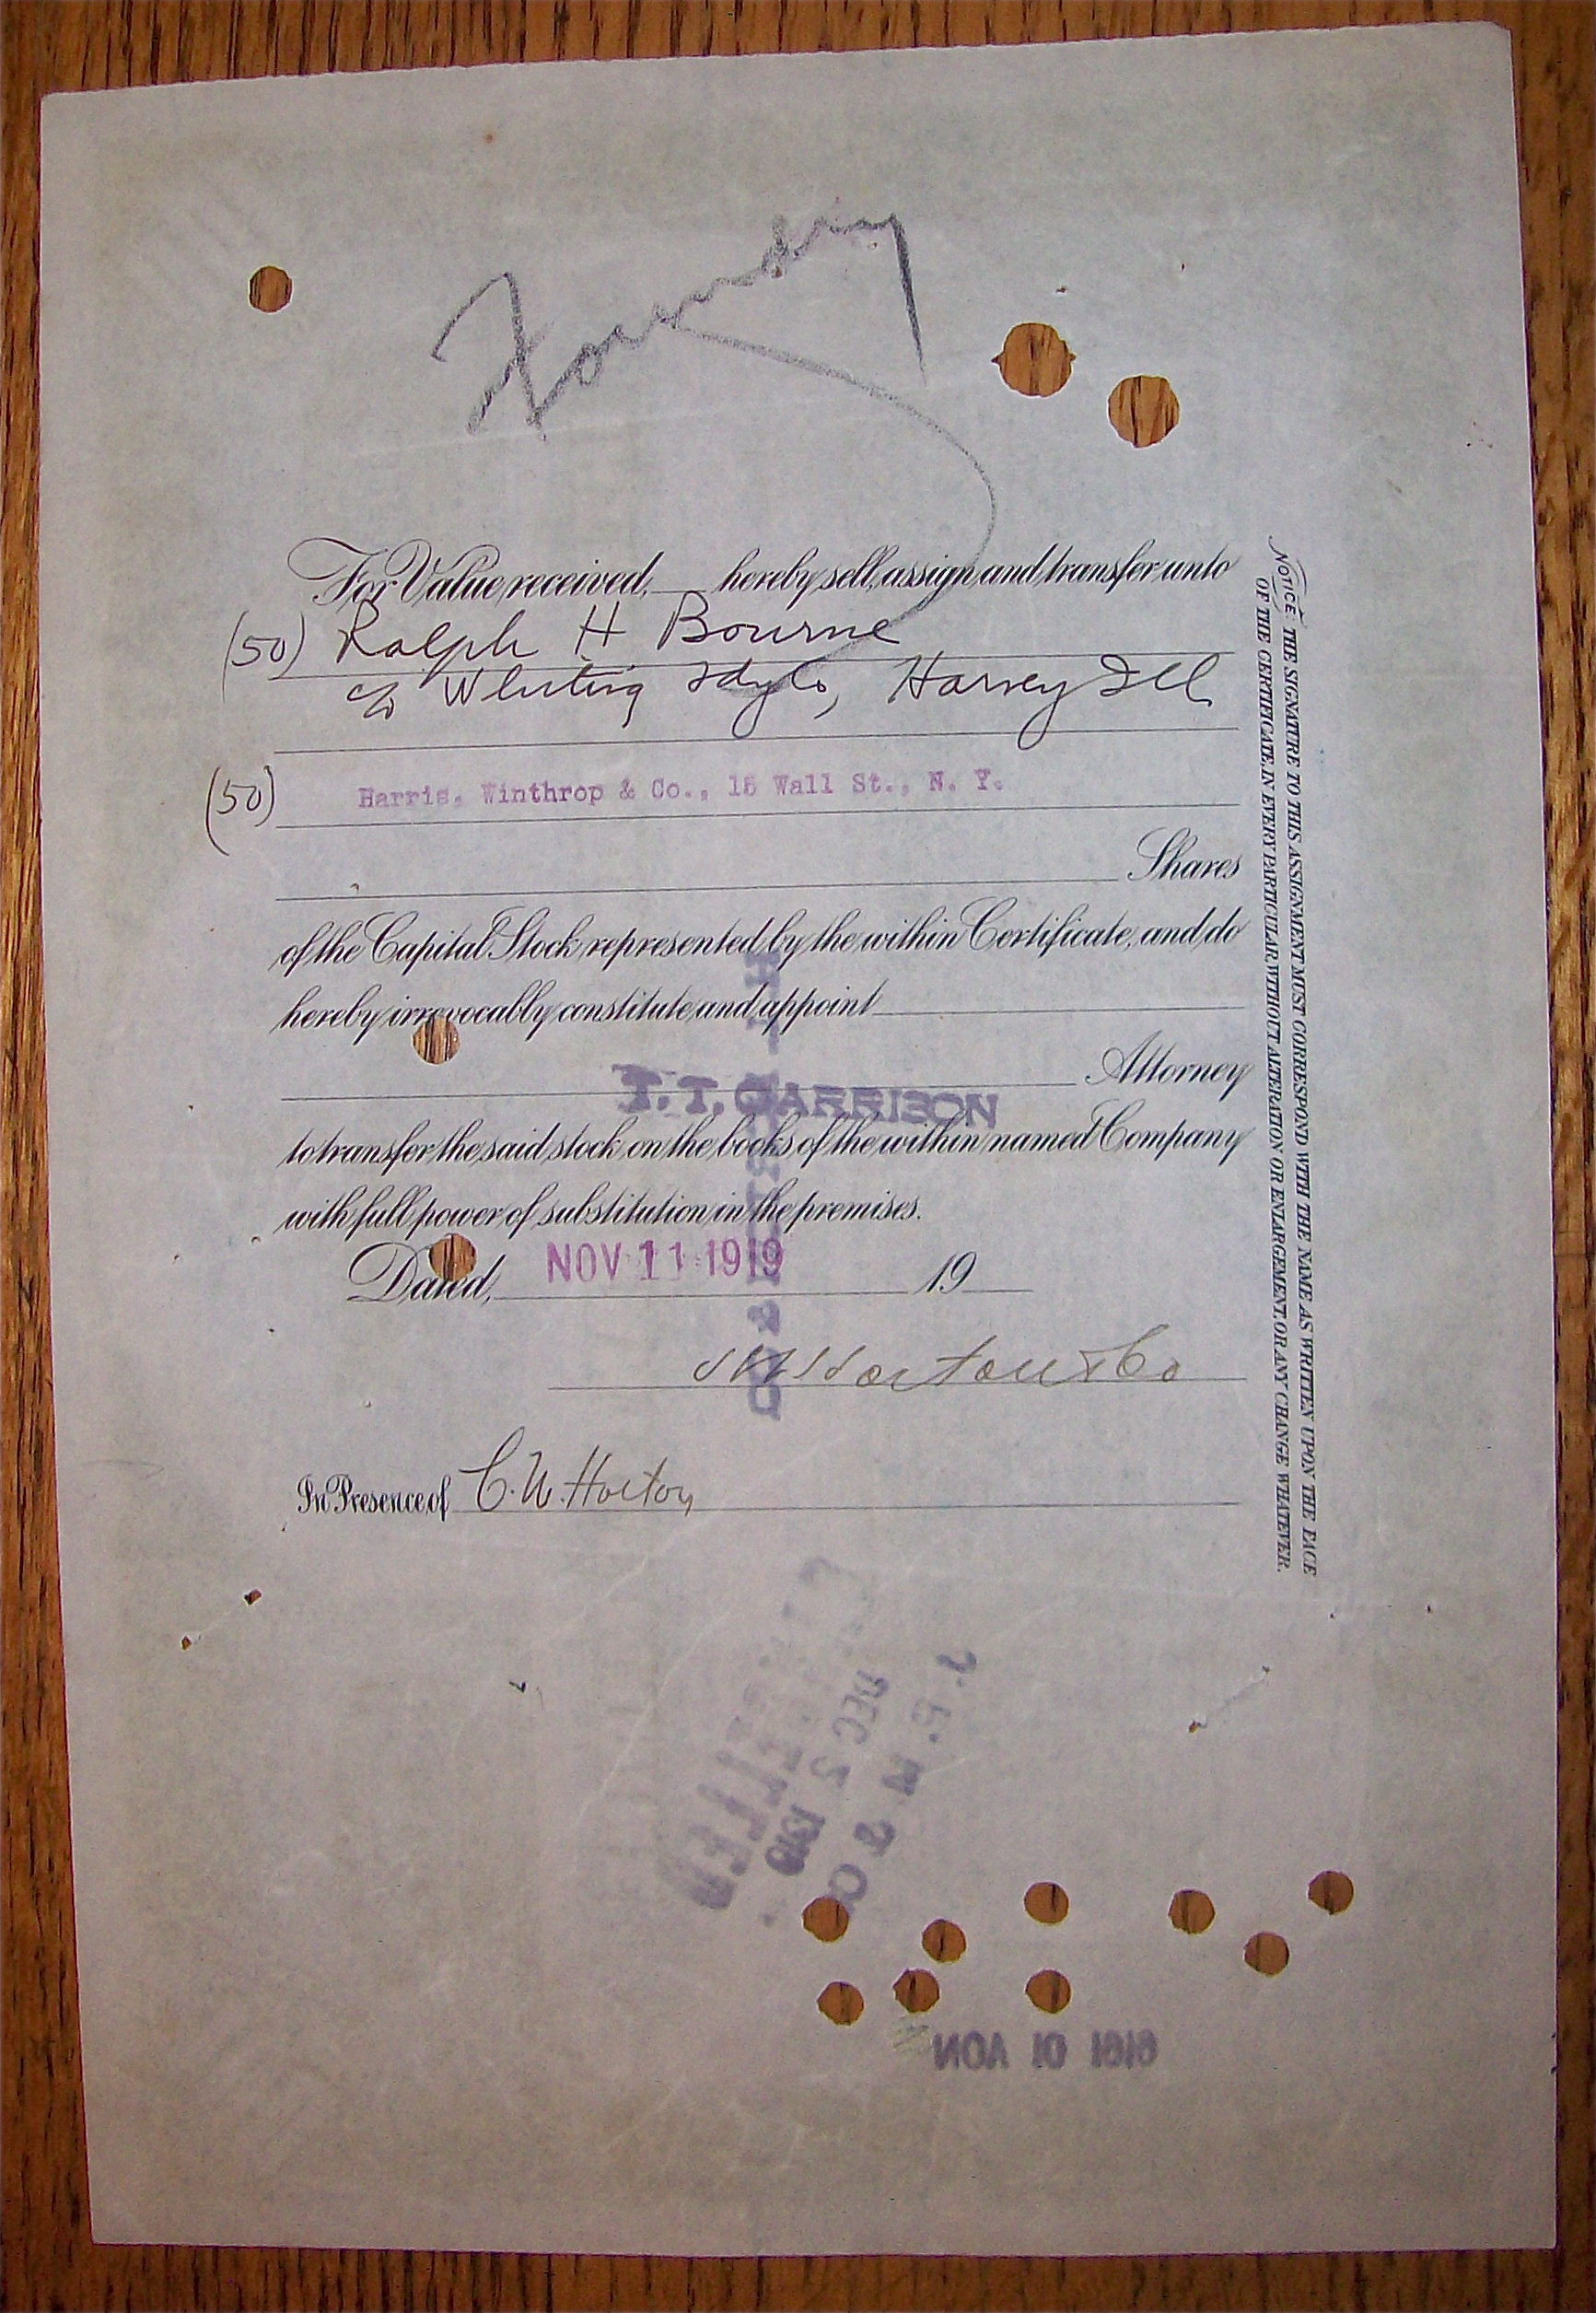 For Value received, hereby sell, assign and transfer unto
(50) Ralph H Bourne
c/o Whiting Harvey Ill
(50) Harris, Winthrop & Co., 15 Wall St., N. Y.
Shares
of the Capital Stock represented by the within Certificate, and do
hereby irrevocably constitute and appoint
Attorney
T. T. GARRISON
to transfer the said stock on the books of the within named Company
with full power of substitution in the premises.
Dated, NOV 11 1919 19
Horton & Co
In Presence of C. W. Horton
NOTICE. THE SIGNATURE TO THIS ASSIGNMENT MUST CORRESPOND WITH THE NAME AS WRITTEN UPON THE FACE
OF THE CERTIFICATE, IN EVERY PARTICULAR WITHOUT ALTERATION OR ENLARGEMENT, OR ANY CHANGE WHATEVER.
DEC 2
NOV 10 1919